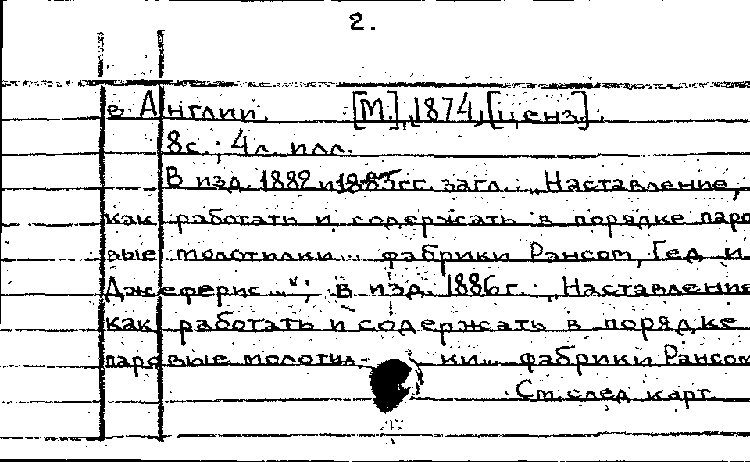 2.
в Англии. [М.], 1874, [ценз.].
8с.; 4л. илл.
В изд. 1882 и 1885 гг. загл.: „Наставление,
как работать и содержать в порядке паро
вые молотилки... фабрики Рансом, Гед и
Джеферис..."; в изд. 1886 г.: „Наставление
как работать и содержать в порядке
паровые молотил- ки... фабрики Рансом
См. след. карт.